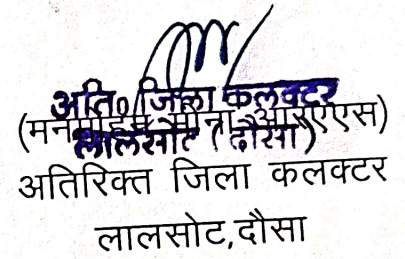 अति० जिला कलक्टर
लालसोट (दौसा)
(मनमोहन मीना आरएएस)
अतिरिक्त जिला कलक्टर
लालसोट,दौसा